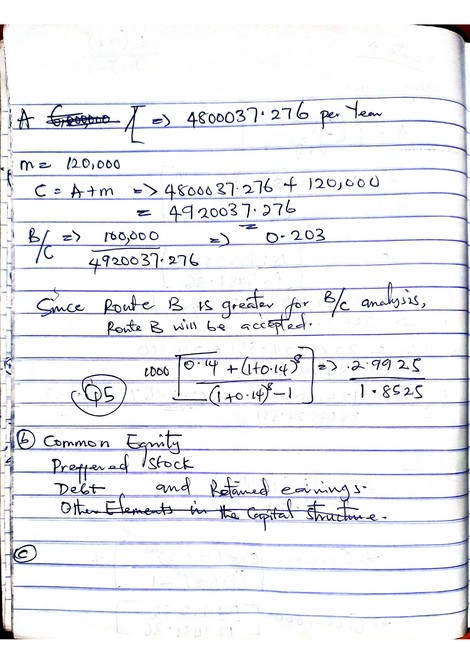 A => 4800037.276 per Year
m = 120,000
C = A+m => 4800037.276 + 120,000
= 4920037.276
B/C => 100,000 / 4920037.276 => 0.203
Since Route B is greater for B/C analysis,
Route B will be accepted.
Q5
1000 [0.14 + (1+0.14)^8 / (1+0.14)^8 - 1] => 2.9925 / 1.8525
(b) Common Equity
Preffered Stock
Debt and Retained earnings.
Other Elements in the Capital Structure.
(c)